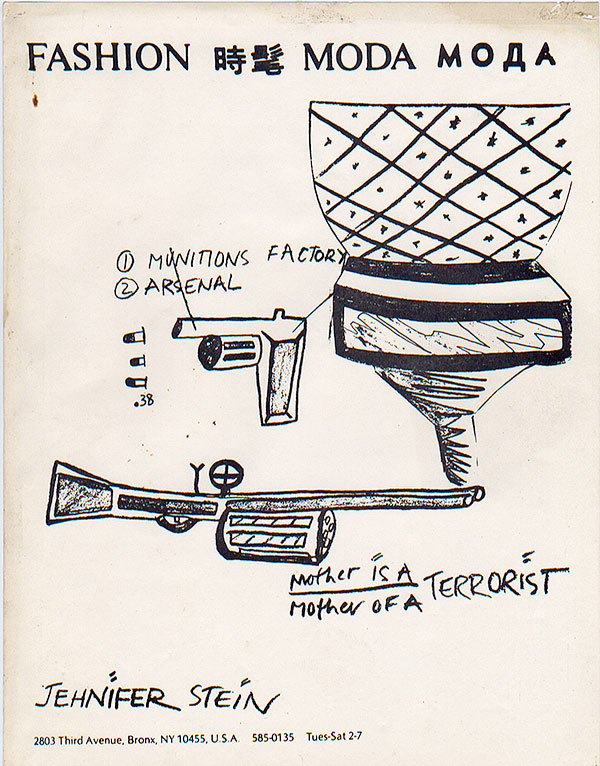 FASHION 時髦 MODA МОДА
① MUNITIONS FACTORY
② ARSENAL
.38
Mother is A
Mother OF A TERRORIST
JEHNIFER STEIN
2803 Third Avenue, Bronx, NY 10455, U.S.A. 585-0135 Tues-Sat 2-7